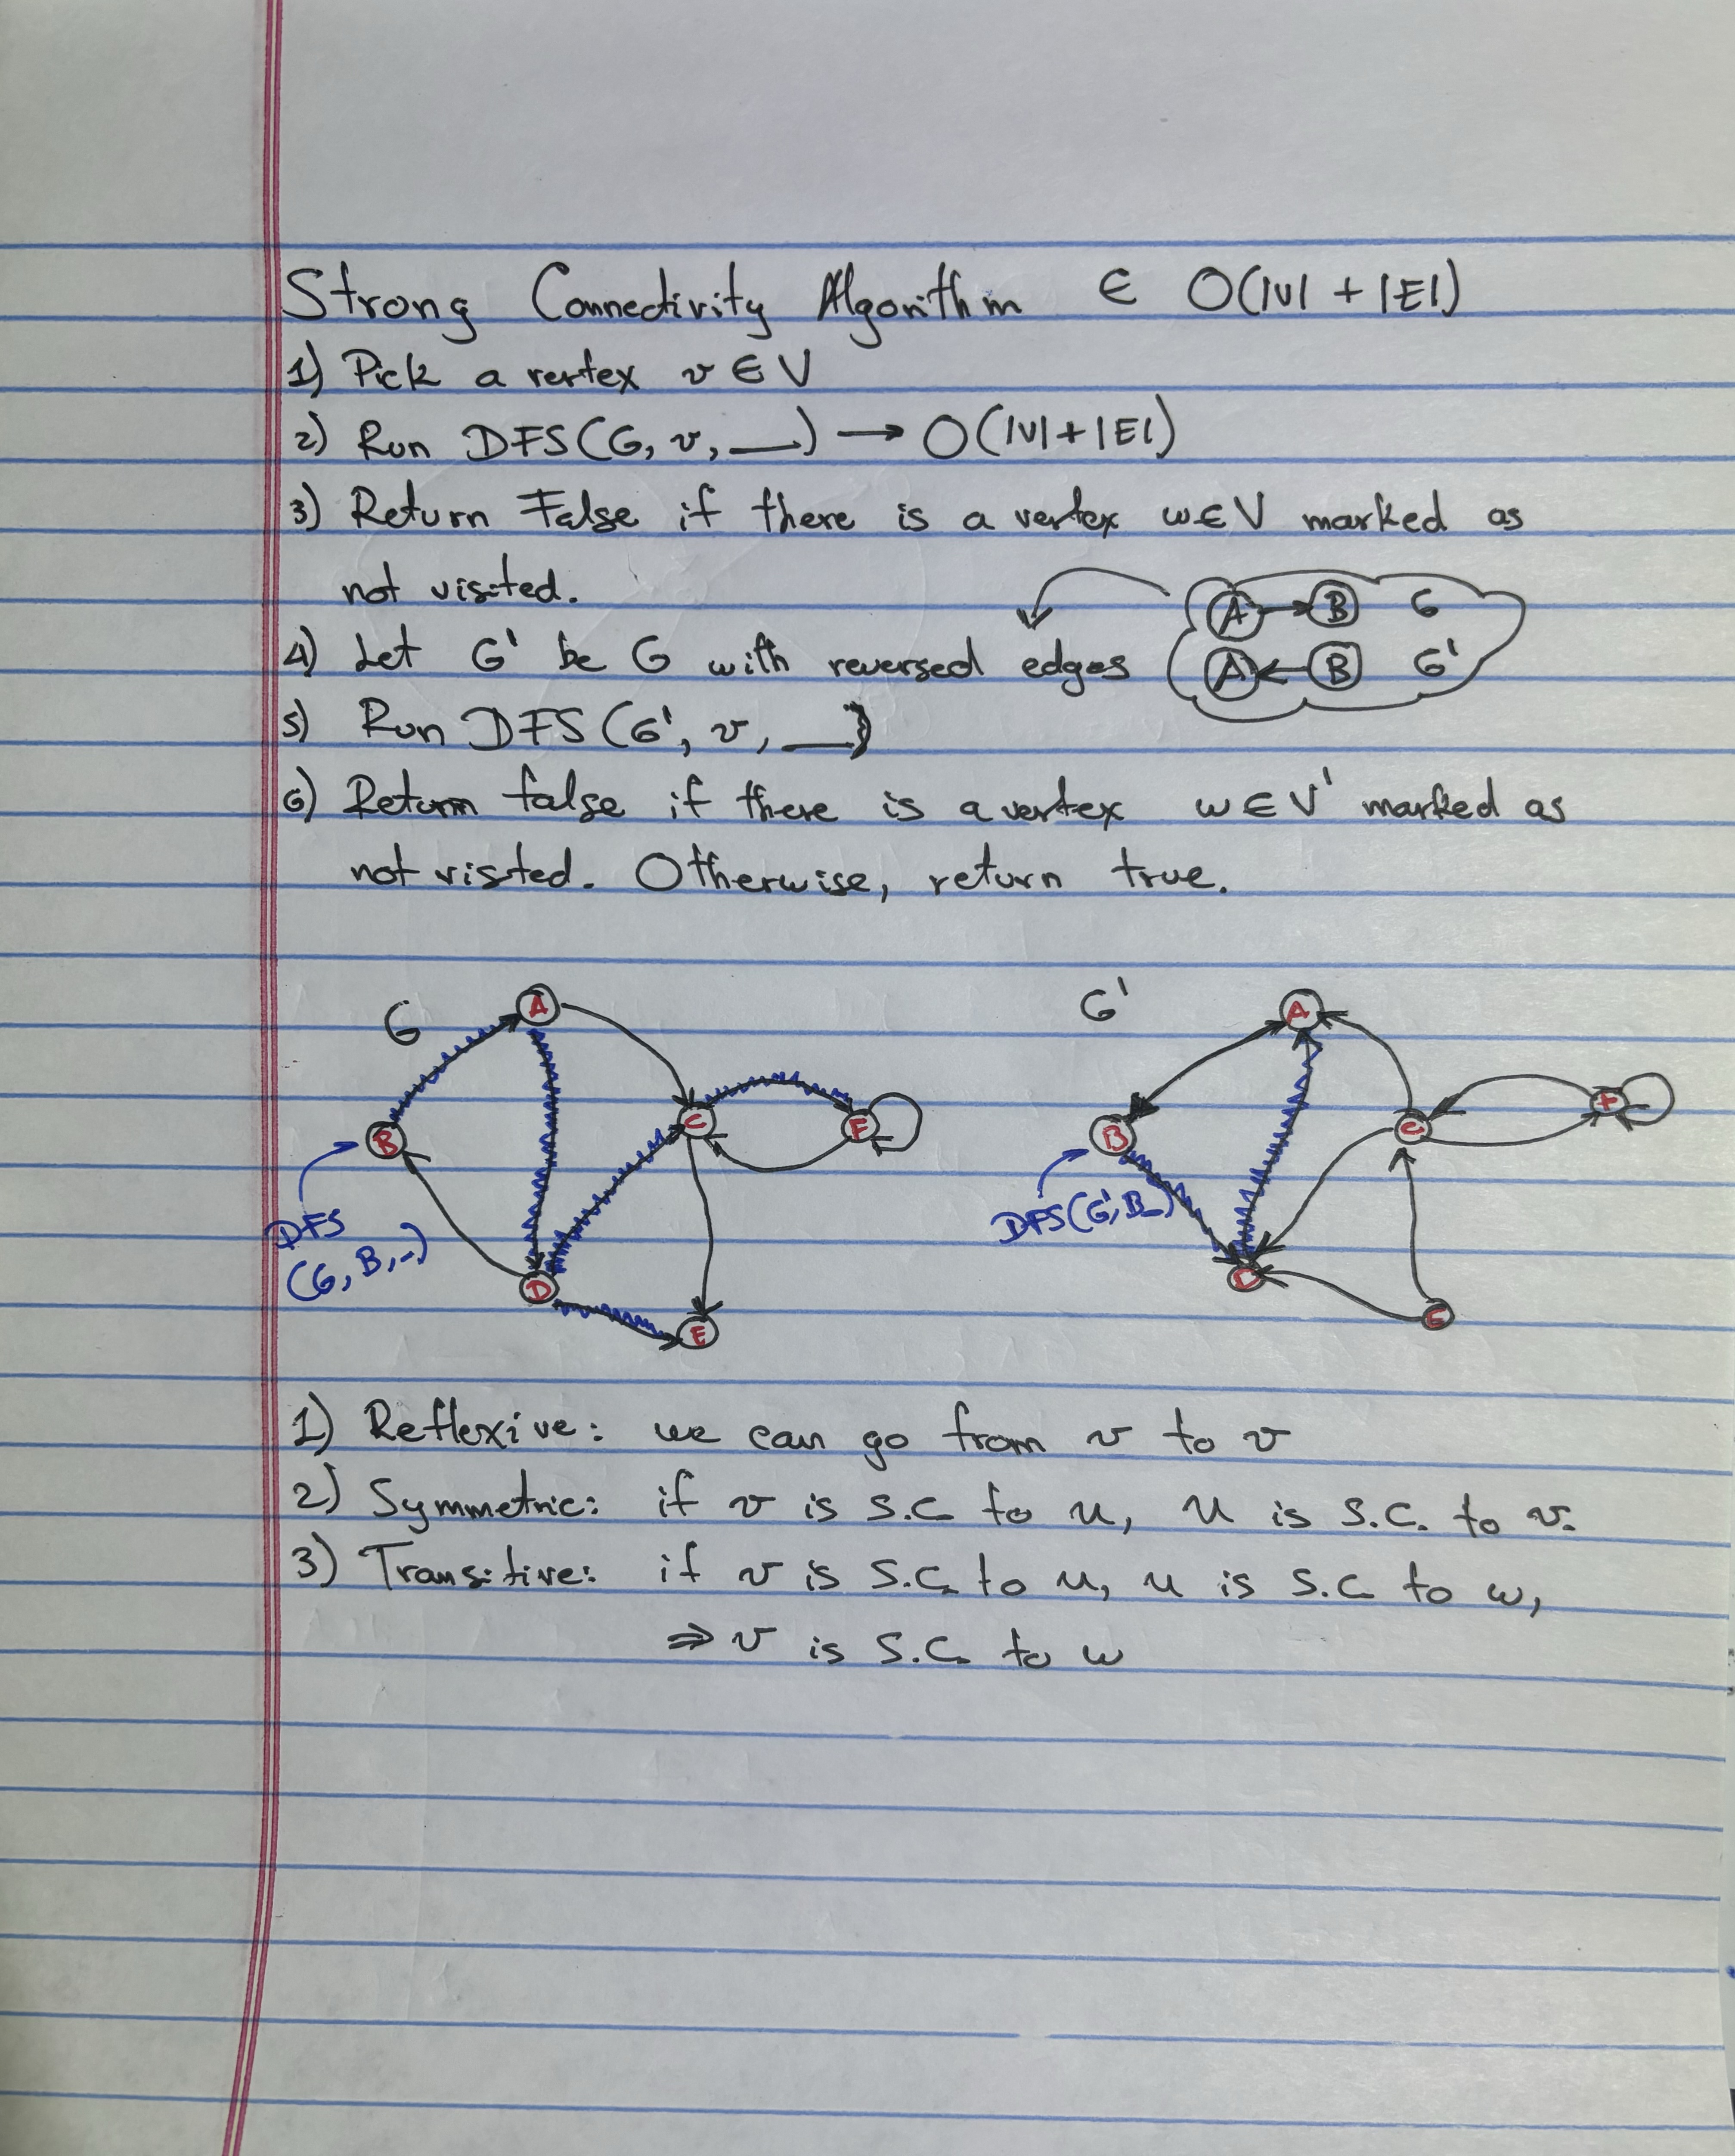 Strong Connectivity Algorithm ∈ O(|V| + |E|)
1) Pick a vertex v ∈ V
2) Run DFS(G, v, __) → O(|V|+|E|)
3) Return False if there is a vertex w∈V marked as
not visited.
A → B G
4) Let G' be G with reversed edges
A ← B G'
5) Run DFS(G', v, __)
6) Return false if there is a vertex w∈V' marked as
not visted. Otherwise, return true.
G
A
B
C
F
D
E
DFS
(G, B, -)
G'
A
B
C
F
D
E
DFS(G', B_)
1) Reflexive: we can go from v to v
2) Symmetric: if v is S.C to u, u is S.C. to v.
3) Transitive: if v is S.C. to u, u is S.C to w,
⇒ v is S.C. to w